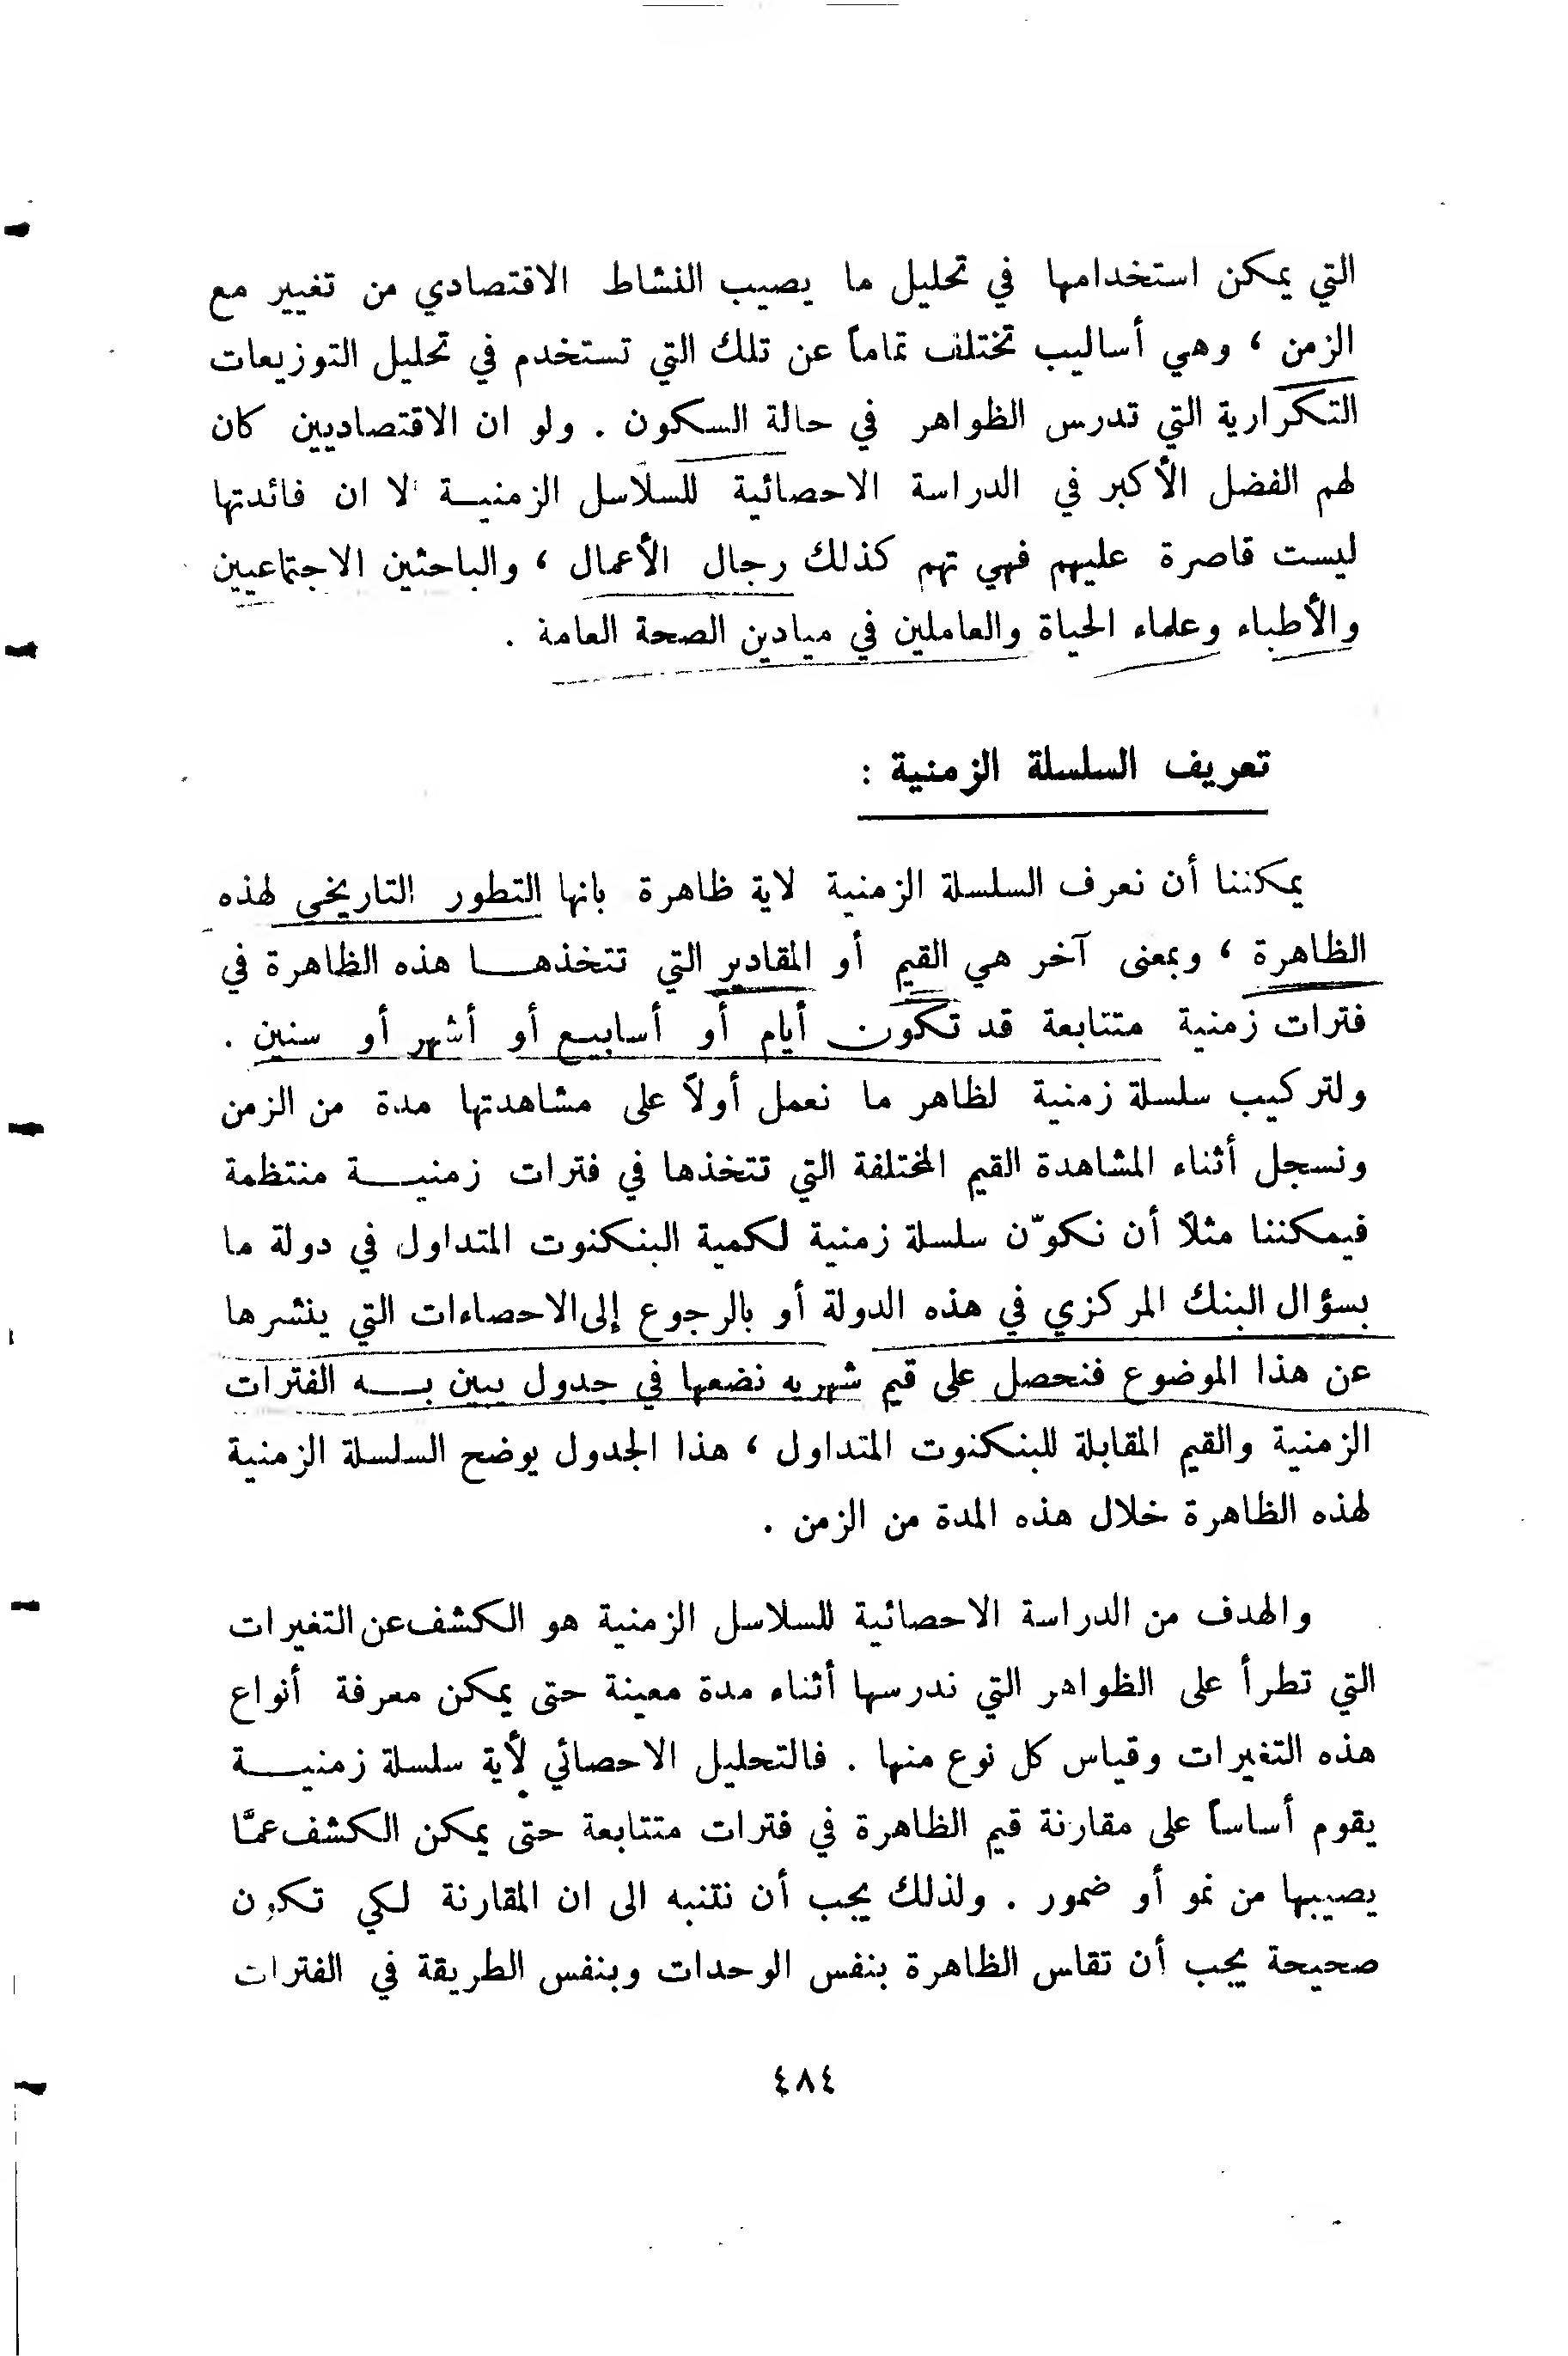 التي يمكن استخدامها في تحليل ما يصيب النشاط الاقتصادي من تغيير مع
الزمن ، وهي أساليب تختلف تماماً عن تلك التي تستخدم في تحليل التوزيعات
التكرارية التي تدرس الظواهر في حالة السكون . ولو ان الاقتصاديين كان
لهم الفضل الأكبر في الدراسة الاحصائية للسلاسل الزمنيــة لا ان فائدتها
ليست قاصرة عليهم فهي تهم كذلك رجال الأعمال ، والباحثين الاجتماعيين
والأطباء وعلماء الحياة والعاملين في ميادين الصحة العامة .
تعريف السلسلة الزمنية :
يمكننا أن نعرف السلسلة الزمنية لاية ظاهرة بانها التطور التاريخي لهذه
الظاهرة ، وبمعنى آخر هي القيم أو المقادير التي تتخذهــا هذه الظاهرة في
فترات زمنية متتابعة قد تكون أيام أو أسابيع أو أشهر أو سنين .
ولتركيب سلسلة زمنية لظاهر ما نعمل أولاً على مشاهدتها مدة من الزمن
ونسجل أثناء المشاهدة القيم المختلفة التي تتخذها في فترات زمنيــة منتظمة
فيمكننا مثلاً أن نكوّن سلسلة زمنية لكمية البنكنوت المتداول في دولة ما
بسؤال البنك المركزي في هذه الدولة أو بالرجوع إلى الاحصاءات التي ينشرها
عن هذا الموضوع فنحصل على قيم شهريه نضعها في جدول يبين بــه الفترات
الزمنية والقيم المقابلة للبنكنوت المتداول ، هذا الجدول يوضح السلسلة الزمنية
لهذه الظاهرة خلال هذه المدة من الزمن .
والهدف من الدراسة الاحصائية للسلاسل الزمنية هو الكشف عن التغيرات
التي تطرأ على الظواهر التي ندرسها أثناء مدة معينة حتى يمكن معرفة أنواع
هذه التغيرات وقياس كل نوع منها . فالتحليل الاحصائي لأية سلسلة زمنيــة
يقوم أساساً على مقارنة قيم الظاهرة في فترات متتابعة حتى يمكن الكشف عمَّا
يصيبها من نمو أو ضمور . ولذلك يجب أن نتنبه الى ان المقارنة لكي تكون
صحيحة يجب أن تقاس الظاهرة بنفس الوحدات وبنفس الطريقة في الفترات
٤٨٤